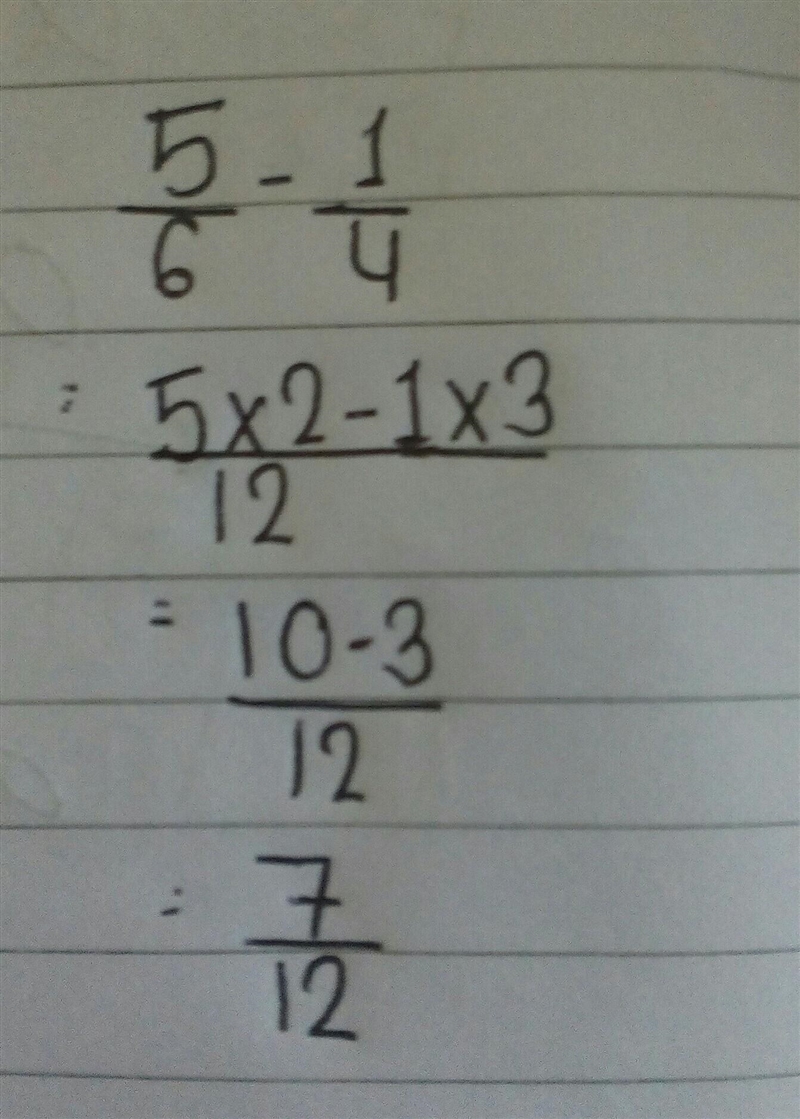 5/6 - 1/4
= 5x2-1x3/12
= 10-3/12
= 7/12